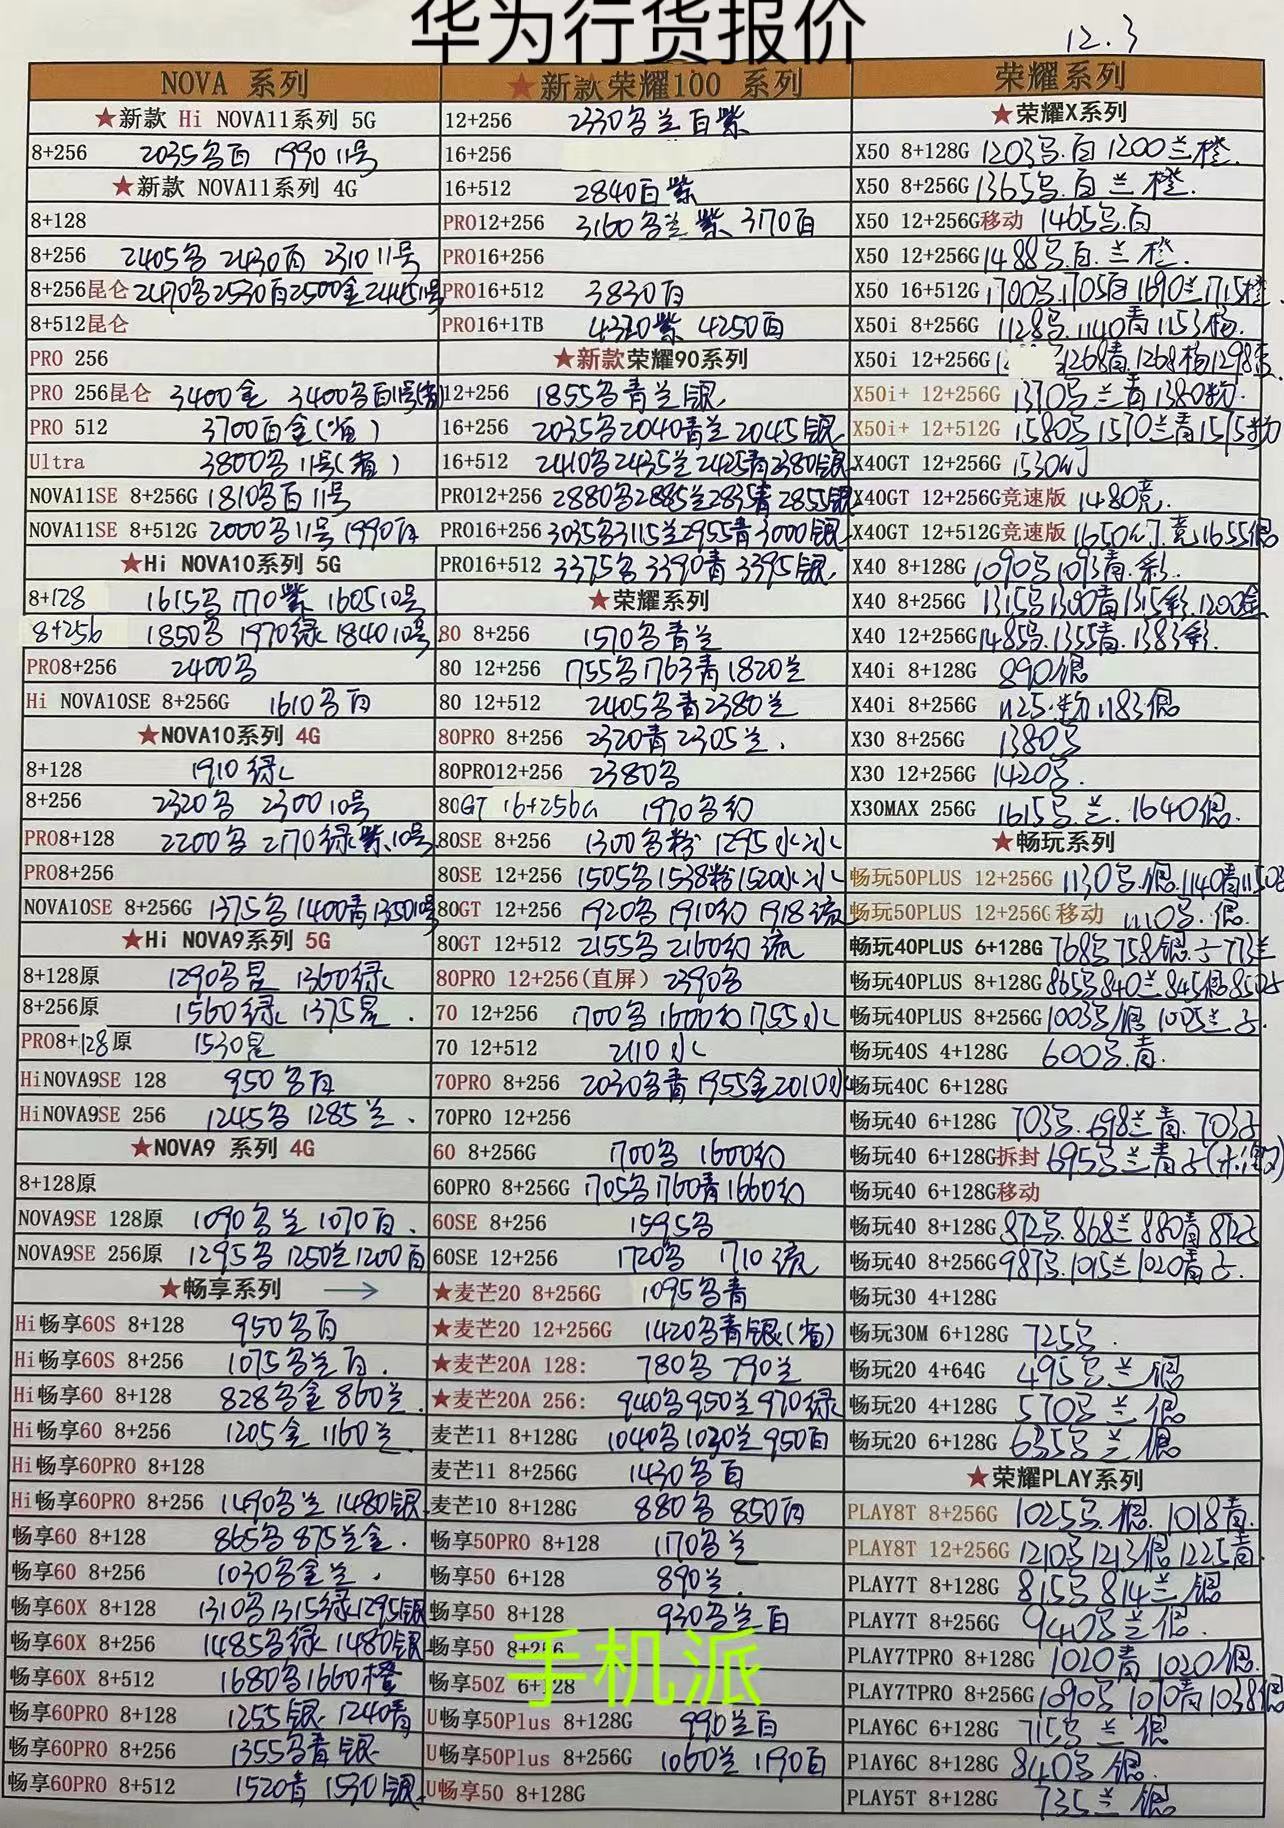 华为行货报价
12.3
NOVA 系列
★新款 Hi NOVA11系列 5G
8+256 2035名白 1990 11号
★新款 NOVA11系列 4G
8+128
8+256 2405名 2430白 2310 11号
8+256昆仑 2470名2530白2500金2445 11号
8+512昆仑
PRO 256
PRO 256昆仑 3400金 3400名白11号
PRO 512 3700白金(省)
Ultra 3800名11号(省)
NOVA11SE 8+256G 1810名白11号
NOVA11SE 8+512G 2000名11号 1990白
★Hi NOVA10系列 5G
8+128 1615名 1770紫 1605 10号
8+256 1850名 1970绿 1840 10号
PRO8+256 2400名
Hi NOVA10SE 8+256G 1610名白
★NOVA10系列 4G
8+128 1910绿
8+256 2320名 2300 10号
PRO8+128 2200名 2170绿紫.10号
PRO8+256
NOVA10SE 8+256G 1375名1400青1350 10号
★Hi NOVA9系列 5G
8+128原 1290名星 1360绿
8+256原 1560绿 1375星.
PRO8+128原 1530星
HiNOVA9SE 128 950名白
HiNOVA9SE 256 1245名 1285兰.
★NOVA9 系列 4G
8+128原
NOVA9SE 128原 1090名兰 1070白.
NOVA9SE 256原 1295名1250兰1200白
★畅享系列 →
Hi畅享60S 8+128 950名白
Hi畅享60S 8+256 1075名兰白.
Hi畅享60 8+128 828名金 860兰.
Hi畅享60 8+256 1205金 1160兰.
Hi畅享60PRO 8+128
Hi畅享60PRO 8+256 1490名兰 1480银.
畅享60 8+128 865名 875兰金.
畅享60 8+256 1030名金兰.
畅享60X 8+128 1310名1315绿1295银
畅享60X 8+256 1485名绿 1480银
畅享60X 8+512 1680名1660橙
畅享60PRO 8+128 1255银 1240青
畅享60PRO 8+256 1355名青银
畅享60PRO 8+512 1520青 1530银
★新款荣耀100 系列
12+256 2330名兰白紫
16+256
16+512 2840白紫
PRO12+256 3160名兰紫 3170白
PRO16+256
PRO16+512 3830白
PRO16+1TB 4320紫 4250白
★新款荣耀90系列
12+256 1855名青兰银.
16+256 2035名2040青兰2045银
16+512 2410名2435兰2425青2380银
PRO12+256 2880名2885兰2835青2855银
PRO16+256 3035名3115兰2955青3000银
PRO16+512 3375名3390青3395银.
★荣耀系列
80 8+256 1570名青兰
80 12+256 1755名1763青1820兰
80 12+512 2405名青2380兰
80PRO 8+256 2320青2305兰.
80PRO12+256 2380名
80GT 16+256G 1970名幻
80SE 8+256 1300名粉 1295水冰
80SE 12+256 1505名1538粉1520水冰
80GT 12+256 1920名1910幻1918流
80GT 12+512 2155名2160幻流
80PRO 12+256(直屏) 2390名
70 12+256 1700名1600幻1755水
70 12+512 2110水
70PRO 8+256 2030名青1955金2010水
70PRO 12+256
60 8+256G 1700名 1600幻
60PRO 8+256G 1705名1760青1660幻
60SE 8+256 1595名
60SE 12+256 1720名 1710流
★麦芒20 8+256G 1095名青
★麦芒20 12+256G 1420名青银(省)
★麦芒20A 128: 780名 790兰
★麦芒20A 256: 940名950兰970绿
麦芒11 8+128G 1040名1030兰950白
麦芒11 8+256G 1430名白
麦芒10 8+128G 880名 850白
畅享50PRO 8+128 1170名兰
畅享50 6+128 890兰.
畅享50 8+128 930名兰白
畅享50 8+256
畅享50Z 6+128
U畅享50Plus 8+128G 990兰白
U畅享50Plus 8+256G 1060兰 1190白
U畅享50 8+128G
荣耀系列
★荣耀X系列
X50 8+128G 1203名.白 1200兰橙.
X50 8+256G 1365名.白兰橙.
X50 12+256G移动 1465名.白
X50 12+256G 1488名.白.兰橙.
X50 16+512G 1700名.1705白1690兰1715橙.
X50i 8+256G 1128名.1140青1153粉.
X50i 12+256G 1268青.1268粉1298
X50i+ 12+256G 1370名兰青1380粉.
X50i+ 12+512G 1580名1570兰青1575粉
X40GT 12+256G 1530幻
X40GT 12+256G竞速版 1480竞.
X40GT 12+512G竞速版 1650幻.竞1655银
X40 8+128G 1090名1093青.彩.
X40 8+256G 1315名1300青1315彩.1200金
X40 12+256G 1485名.1355青.1383彩.
X40i 8+128G 890银
X40i 8+256G 1125.粉1183银
X30 8+256G 1380名
X30 12+256G 1420名.
X30MAX 256G 1615名.兰.1640银.
★畅玩系列
畅玩50PLUS 12+256G 1130名.银.1140青1150
畅玩50PLUS 12+256G 移动 1110名.银.
畅玩40PLUS 6+128G 768名758银.子773兰
畅玩40PLUS 8+128G 865名840兰845银850子
畅玩40PLUS 8+256G 1003名银1025兰子.
畅玩40S 4+128G 600名.青.
畅玩40C 6+128G
畅玩40 6+128G 703名.698兰青.703子
畅玩40 6+128G拆封 695名兰青子
畅玩40 6+128G移动
畅玩40 8+128G 872名.868兰880青872子
畅玩40 8+256G 987名.1015兰1020青子.
畅玩30 4+128G
畅玩30M 6+128G 725名.
畅玩20 4+64G 495名兰银
畅玩20 4+128G 570名兰银
畅玩20 6+128G 635名兰银
★荣耀PLAY系列
PLAY8T 8+256G 1025名.银.1018青.
PLAY8T 12+256G 1210名1213银1225青
PLAY7T 8+128G 815名814兰银
PLAY7T 8+256G 940名兰银.
PLAY7TPRO 8+128G 1020青 1020银.
PLAY7TPRO 8+256G 1090名1070青1038银
PLAY6C 6+128G 715名兰银
PlAY6C 8+128G 840名银.
PLAY5T 8+128G 735兰银
手机派